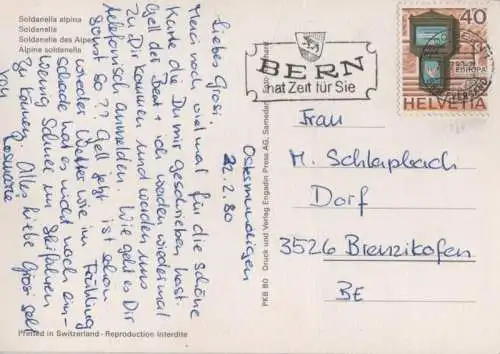 Soldanella alpina
Soldanelle
Soldanelle des Alpes
Alpine soldanella
Ostermundigen
22.2.80
Liebes Grosi
Merci noch vielmal für die schöne
Karte die Du mir geschrieben hast.
Gell der Beat + ich werden wiedermal
Dir kommen und werden uns
telefonisch anmelden. Wie geht es Dir
sonst so?? Gell jetzt ist schon
wieder Wetter wie im Frühling
schade hat es nicht noch ein
wenig Schnee um Skifahren
zu können. Alles liebe Grosi
von Rosmarie
Printed in Switzerland - Reproduction interdite
PKB 80 Druck und Verlag Engadin Press AG, Samedan
BERN
hat Zeit für Sie
40
EUROPA
HELVETIA
Frau
M. Schlapbach
Dorf
3526 Brenzikofen
BE